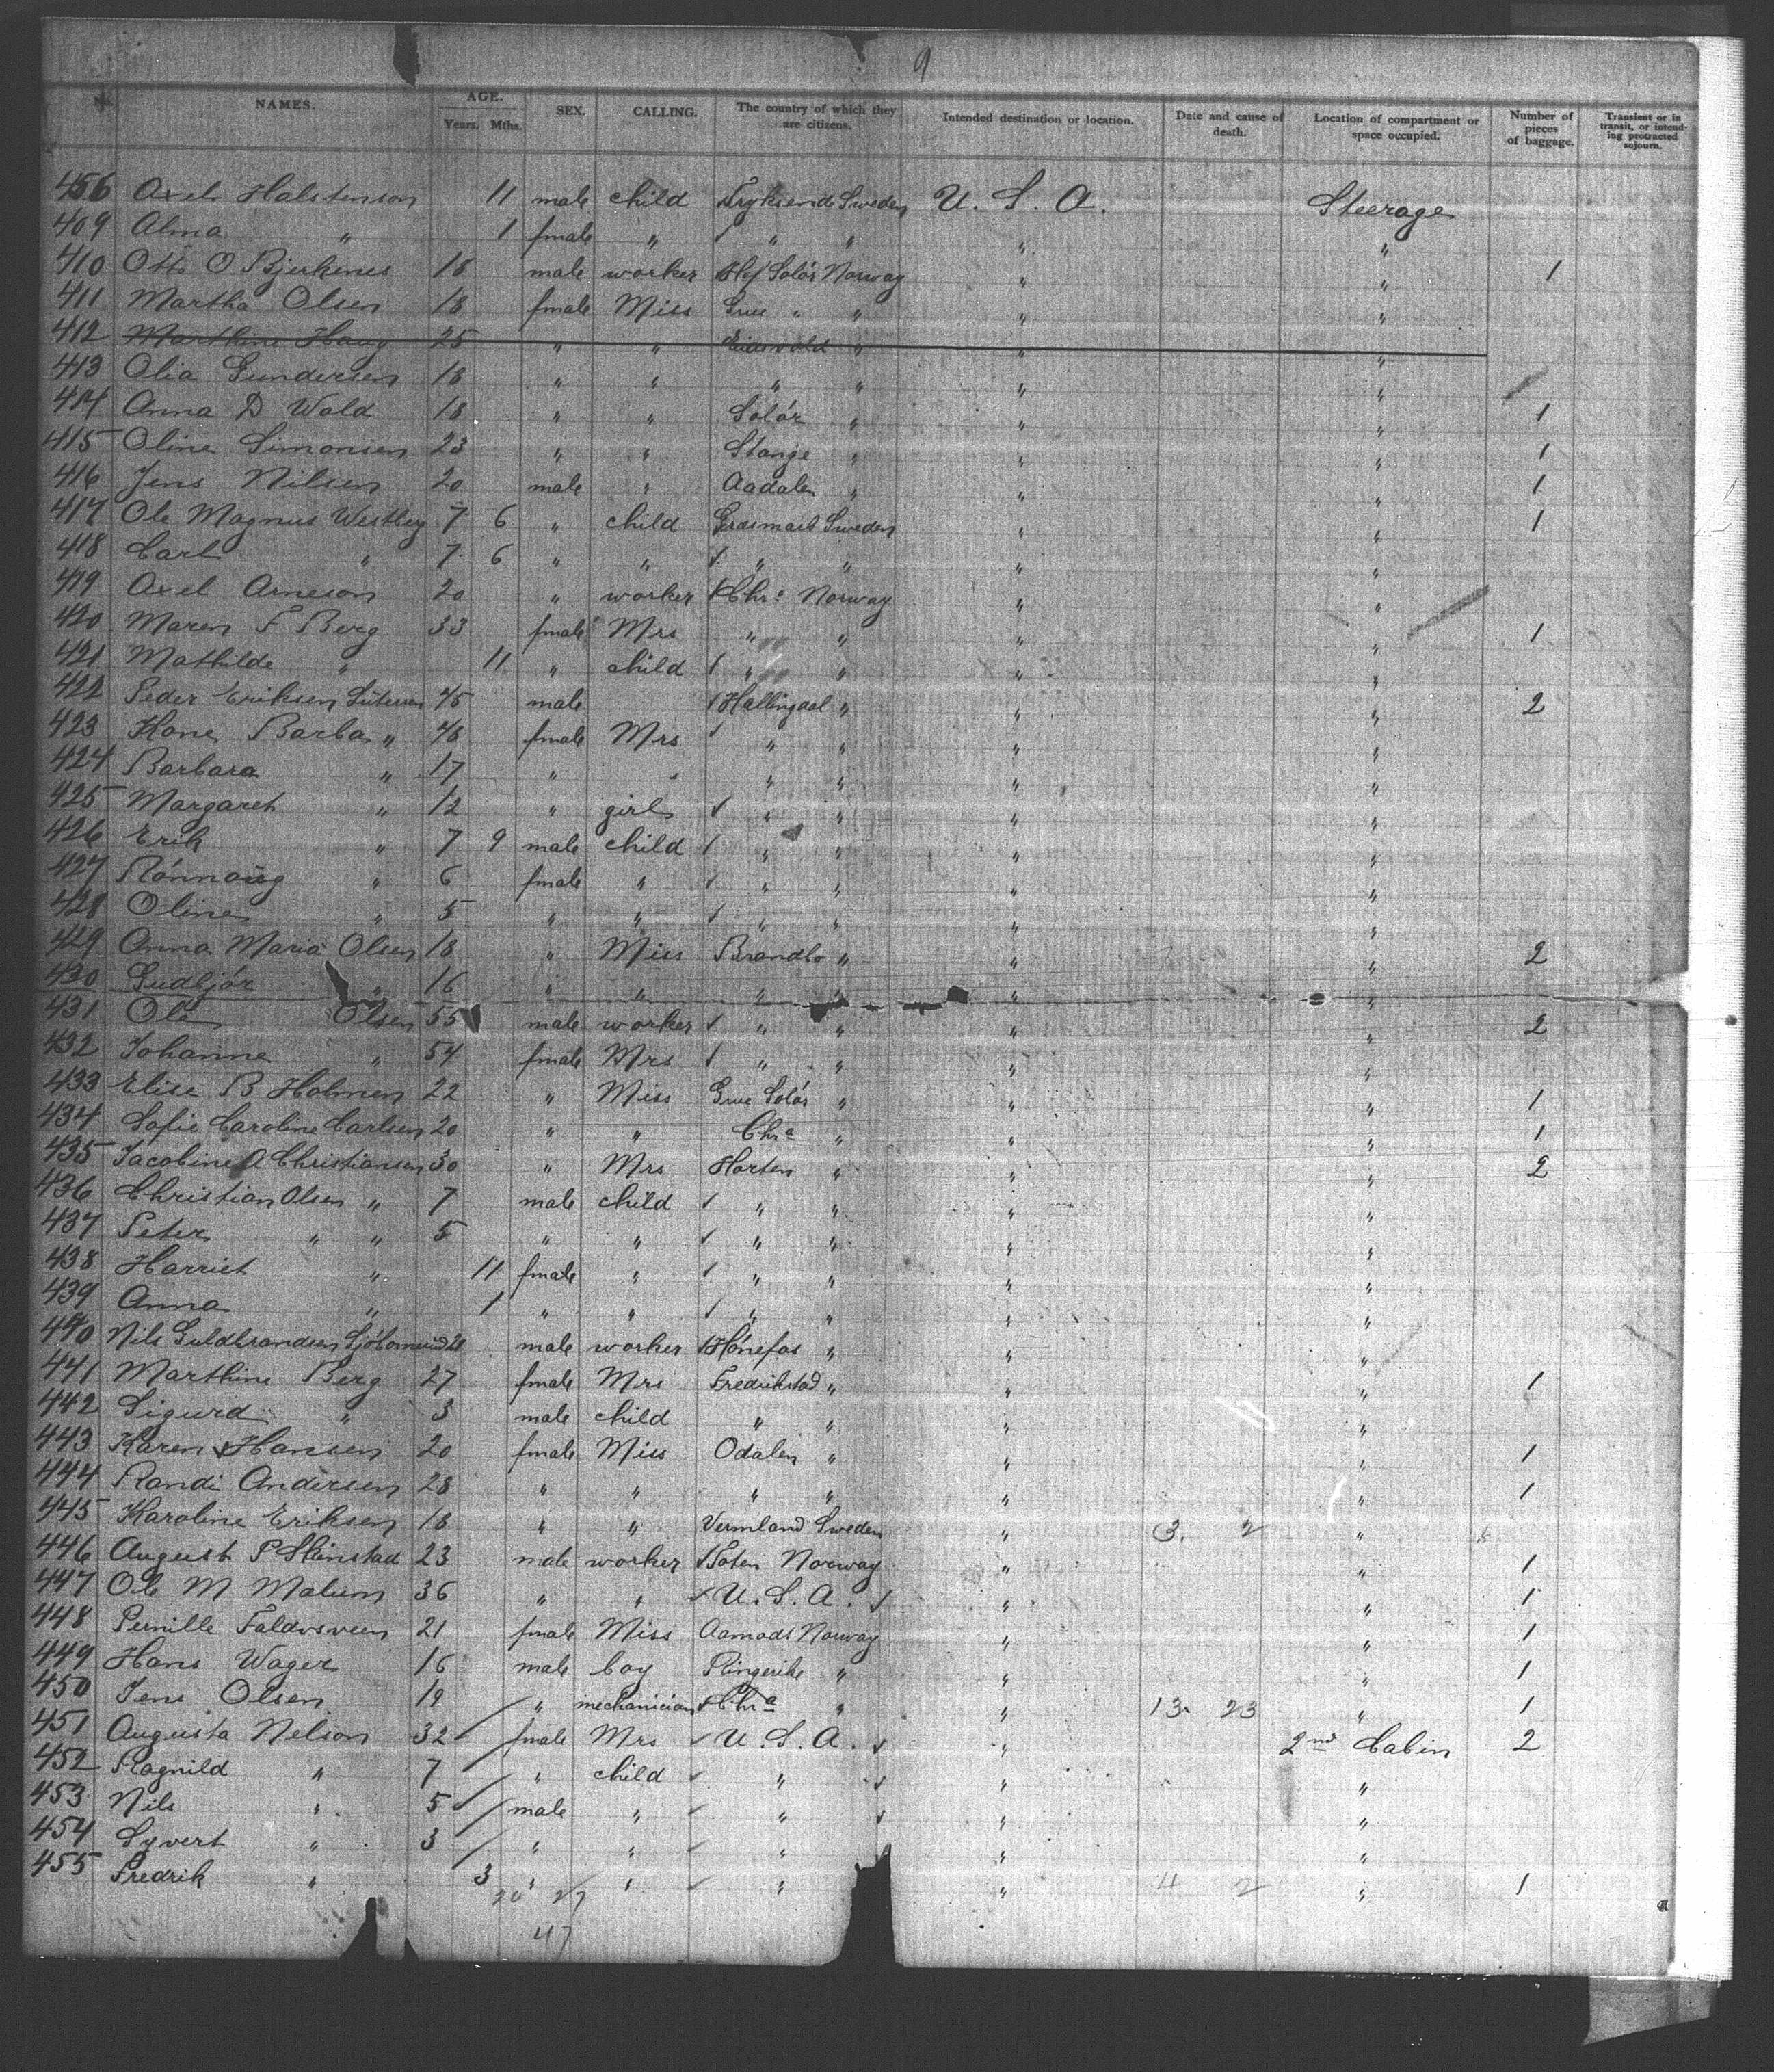 9
No. NAMES. AGE. Years. Mths. SEX. CALLING. The country of which they are citizens. Intended destination or location. Date and cause of death. Location of compartment or space occupied. Number of pieces of baggage. Transient or in transit, or intending protracted sojourn.
456 Axel Halstenson 11 male child Sweden U. S. A. Steerage
409 Alma " 1 fmale " " " " "
410 Otto O Bjerkenes 18 male worker Solör Norway " " 1
411 Martha Olsen 18 fmale Miss Grue " " " "
412 Marthine Haug 25 " " Eidsvold " " "
413 Olia Gundersen 18 " " " " " "
414 Anna D Wold 18 " " Solör " " " 1
415 Oline Simonsen 23 " " Stange " " " 1
416 Jens Nilsen 20 male " Aadalen " " " 1
417 Ole Magnus Westberg 7 6 " child Sweden " " 1
418 Carl " 7 6 " " " " " "
419 Axel Arneson 20 " worker Chra Norway " "
420 Maren F Berg 33 fmale Mrs " " " " 1
421 Mathilde " 11 " child " " " "
422 Peder Eriksen 45 male Hallingdal " " " 2
423 Kone Barba " 48 fmale Mrs " " " "
424 Barbara " 17 " " " " " "
425 Margareth " 12 " girl " " " "
426 Erik " 7 9 male child " " " "
427 Rönnaug " 6 fmale " " " " "
428 Oline " 5 " " " " " "
429 Anna Maria Olsen 18 " Miss Brandbo " " " 2
430 Gudbjör " 16 " " " " " "
431 Ole Olsen 55 male worker " " " " 2
432 Johanne " 54 fmale Mrs " " " "
433 Elise B Holmen 22 " Miss Grue Solör " " " 1
434 Sofie Caroline Carlsen 20 " " Chra " " " 1
435 Jacobine A Christiansen 30 " Mrs Horten " " " 2
436 Christian Olsen " 7 male child " " " "
437 Peter " " 5 " " " " " "
438 Harriet " 11 fmale " " " " "
439 Anna " 1 " " " " " "
440 Nils Guldbrandsen male worker Hönefos " " "
441 Marthine Berg 27 fmale Mrs Fredrikstad " " " 1
442 Sigurd " 3 male child " " " "
443 Karen Hansen 20 fmale Miss Odalen " " " 1
444 Randi Andersen 28 " " " " " " 1
445 Karoline Eriksen 18 " " Vermland Sweden " 3. 2 "
446 August P Skinstad 23 male worker Toten Norway " " 1
447 Ole M Malum 36 " " U. S. A. " " 1
448 Pernille 21 fmale Miss Aamodt Norway " " 1
449 Hans Wager 16 male boy Ringerike " " " 1
450 Jens Olsen 19 " mechanician Chra " " 13. 23 " 1
451 Augusta Nelson 32 fmale Mrs U. S. A. " 2nd Cabin 2
452 Ragnild " 7 " child " " "
453 Nils " 5 male " " " "
454 Syvert " 3 " " " " "
455 Fredrik " 3 " " " " 4 2 " 1
20 27
47